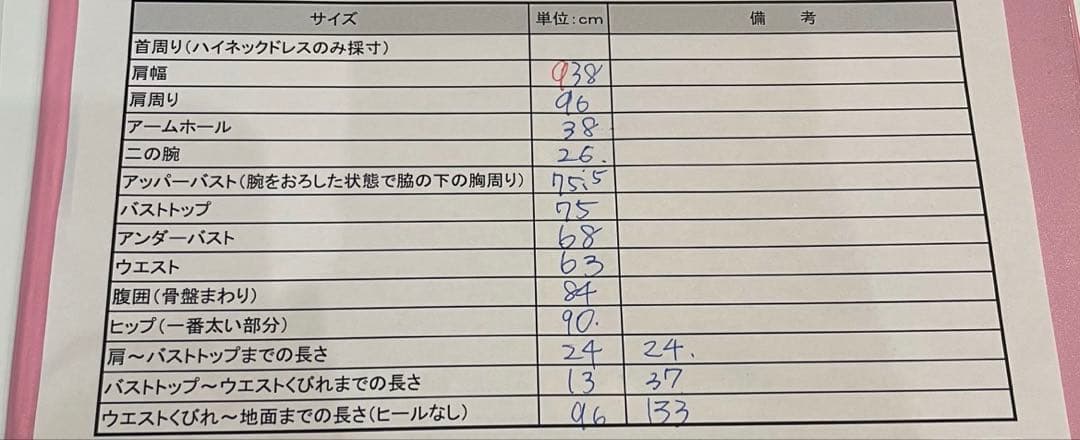 サイズ 単位：cm 備考
首周り（ハイネックドレスのみ採寸）
肩幅 938
肩周り 96
アームホール 38
二の腕 26.
アッパーバスト（腕をおろした状態で脇の下の胸周り） 75.5
バストトップ 75
アンダーバスト 68
ウエスト 63
腹囲（骨盤まわり） 84
ヒップ（一番太い部分） 90.
肩～バストトップまでの長さ 24 24.
バストトップ～ウエストくびれまでの長さ 13 37
ウエストくびれ～地面までの長さ（ヒールなし） 96 133